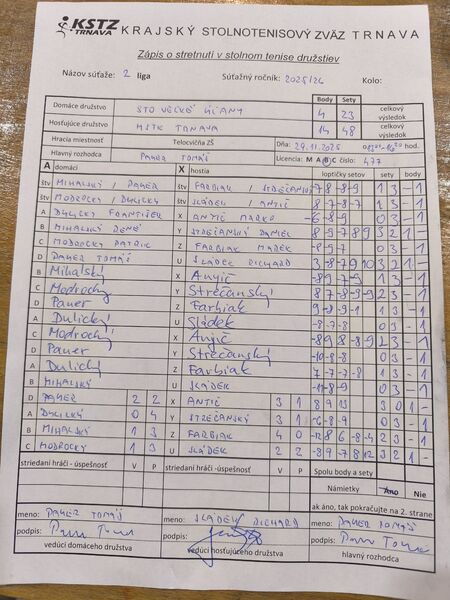 KSTZ TRNAVA KRAJSKÝ STOLNOTENISOVÝ ZVÄZ TRNAVA
Zápis o stretnutí v stolnom tenise družstiev
Názov súťaže: 2 liga Súťažný ročník: 2025/26 Kolo:
Body Sety
Domáce družstvo STO VEĽKÉ ÚĽANY 4 23 celkový výsledok
Hosťujúce družstvo MSTK TRNAVA 14 48 celkový výsledok
Hracia miestnosť Telocvičňa ZŠ Dňa: 29.11.2025 hod.
Hlavný rozhodca PAUER TOMÁŠ Licencia: M A B C číslo: 477
A domáci X hostia loptičky setov sety body
štv MIHALSKÝ / PAUER štv FARBIAK / STREČANSKÝ 1 3 - 1
štv MODROCKÝ / DULICKÝ štv SLÁDEK / ANTIČ -8 7 -8 -7 1 3 - 1
A DULICKÝ FRANTIŠEK X ANTIČ MARKO -6 -8 -9 0 3 - 1
B MIHALSKÝ RENÉ Y STREČANSKÝ DANIEL 3 2 1 -
C MODROCKÝ PATRIK Z FARBIAK MAREK -8 -9 -7 0 3 - 1
D PAUER TOMÁŠ U SLÁDEK RICHARD 3 2 1 -
B Mihalský X Anjič 1 3 - 1
C Modrocký Y Strečanský 2 3 - 1
D Pauer Z Farbiak 1 3 - 1
A Dulický U Sládek -8 -7 -8 0 3 - 1
C Modrocký X Anjič 2 3 - 1
D Pauer Y Strečanský -10 -8 -8 0 3 - 1
A Dulický Z Farbiak 1 3 - 1
B MIHALSKÝ U SLÁDEK -11 -8 -9 0 3 - 1
D PAUER 2 2 X ANTIČ 3 1 8 9 13 3 0 1 -
A DULICKÝ 0 4 Y STREČANSKÝ 3 1 -6 -8 -9 0 3 - 1
B MIHALSKÝ 1 3 Z FARBIAK 4 0 -12 8 6 -8 -4 2 3 - 1
C MODROCKÝ 1 3 U SLÁDEK 2 2 -8 9 -7 8 12 3 2 1 -
striedaní hráči - úspešnosť V P striedaní hráči - úspešnosť V P Spolu body a sety
Námietky Áno Nie
ak áno, tak pokračujte na 2. strane
meno: PAUER TOMÁŠ meno: SLÁDEK RICHARD meno: PAUER TOMÁŠ
podpis: podpis: podpis:
vedúci domáceho družstva vedúci hosťujúceho družstva hlavný rozhodca